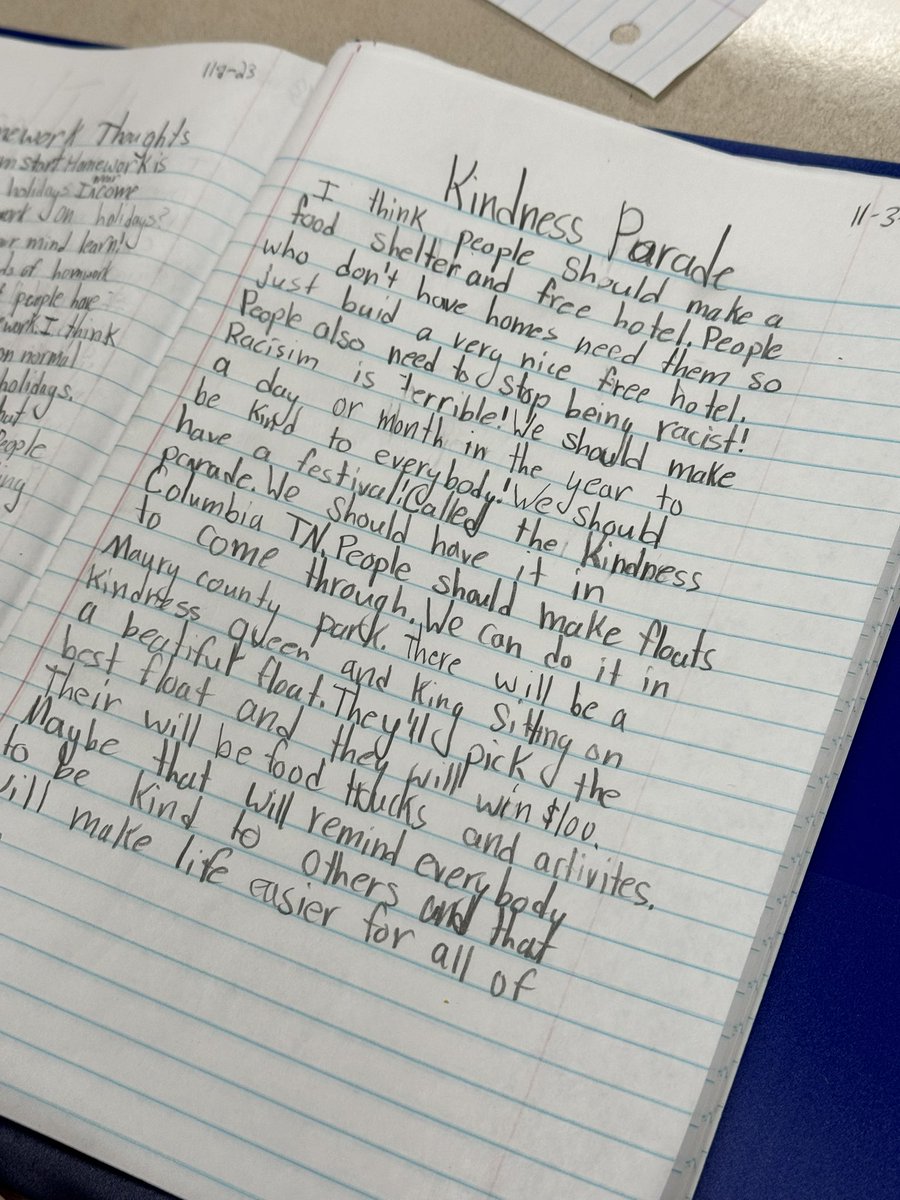 118-23
Thoughts
start Homework is
holidays. Income
over
on holidays?
mind learn!
of homwork
people have
I think
on normal
holidays.
but
People
Kindness Parade
11-3-
I think people should make a
food shelter and free hotel. People
who don't have homes need them so
just buid a very nice free hotel.
People also need to stop being racist!
Racisim is terrible! We should make
a day or month in the year to
be kind to everybody! We should
have a festival! Called the Kindness
parade. We should have it in
Columbia TN. People should make floats
to come through. We can do it in
Maury county park. There will be a
Kindness queen and King sitting on
a beatiful float. They'll pick the
best float and they will win $100.
Their will be food trucks and activites.
Maybe that will remind everybody
to be kind to others and that
will make life easier for all of